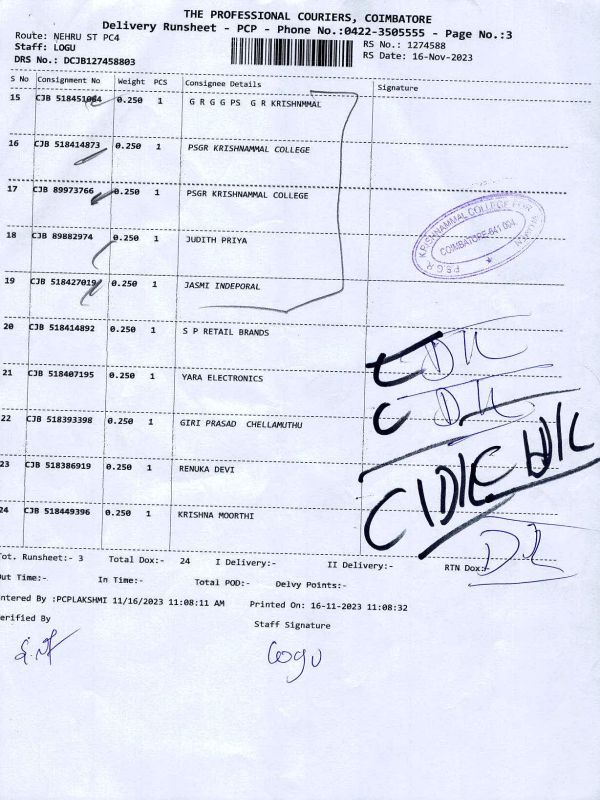 THE PROFESSIONAL COURIERS, COIMBATORE
Delivery Runsheet - PCP - Phone No.:0422-3505555 - Page No.:3
Route: NEHRU ST PC4
RS No.: 1274588
Staff: LOGU
RS Date: 16-Nov-2023
DRS No.: DCJB127458803
S No Consignment No Weight PCS Consignee Details Signature
15 CJB 0.250 1 G R G G PS G R KRISHNMMAL
16 CJB 518414873 0.250 1 PSGR KRISHNAMMAL COLLEGE
17 CJB 89973766 0.250 1 PSGR KRISHNAMMAL COLLEGE
18 CJB 89882974 0.250 1 JUDITH PRIYA
19 CJB 518427019 0.250 1 JASMI INDEPORAL
P.S.G.R. KRISHNAMMAL COLLEGE FOR WOMEN
COIMBATORE-641 004
20 CJB 518414892 0.250 1 S P RETAIL BRANDS
21 CJB 518407195 0.250 1 YARA ELECTRONICS
22 CJB 518393398 0.250 1 GIRI PRASAD CHELLAMUTHU
23 CJB 518386919 0.250 1 RENUKA DEVI
24 CJB 518449396 0.250 1 KRISHNA MOORTHI
ot. Runsheet:- 3 Total Dox:- 24 I Delivery:- II Delivery:- RTN Dox:-
ut Time:- In Time:- Total POD:- Delvy Points:-
ntered By :PCPLAKSHMI 11/16/2023 11:08:11 AM Printed On: 16-11-2023 11:08:32
erified By
Staff Signature
Logu